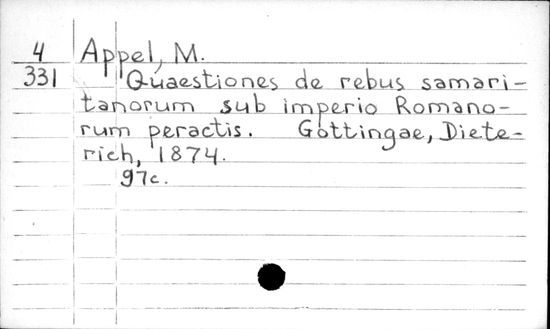 4 Appel, M.
331 Quaestiones de rebus samari-
tanorum sub imperio Romano-
rum peractis. Gottingae, Diete-
rich, 1874.
97c.